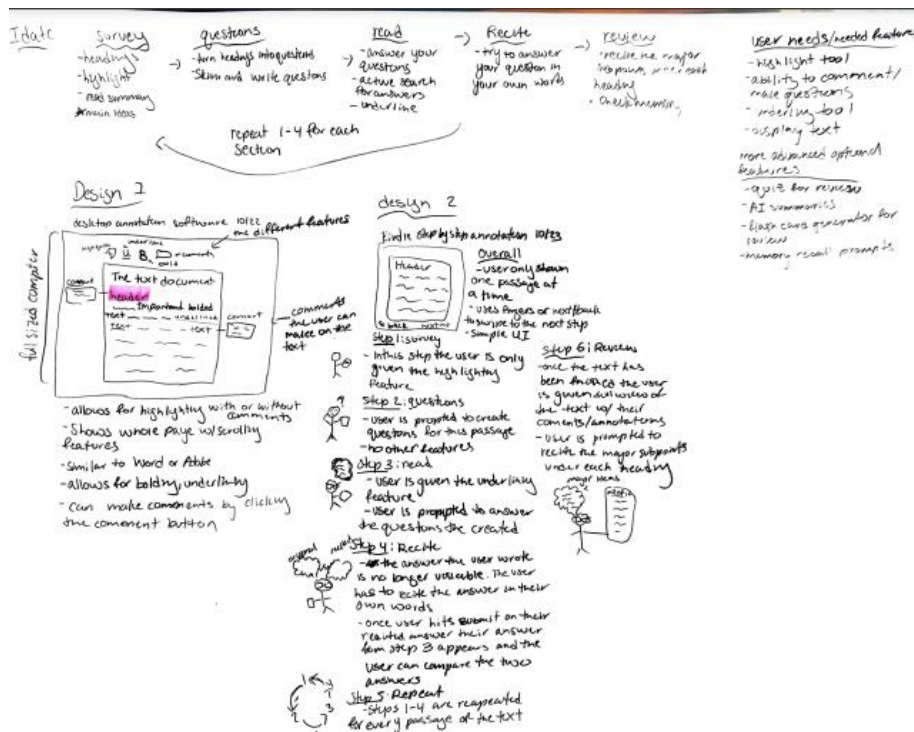 Idate
survey
-headings
-highlight
-read summary
main ideas
questions
-turn headings into questions
-Skim and write questons
read
-answer your
questons
-active search
for answers
-underline
Recite
-try to answer
your question in
your own words
review
-recite the major
subpoints under each
heading
repeat 1-4 for each
section
user needs/needed feature
-highlight tool
-ability to comment/
make questions
-underling tool
-display text
more advanced optional
features
-quiz for review
-AI summaries
-flash card generator for
review
-memory recall prompts
Design 1
desktop annotation software 10/22
the different features
full sized computer
underline
B
comments
bold
The text document
header
Important bolded
text
underlined
text
text
comment
comment
comments
the user can
make on the
text
-allows for highlighting with or without
comments
-Shows whole page w/scrolling
features
-similar to Word or Adobe
-allows for bolding, underlining
-can make comments by clicking
the comment button
design 2
Kindle step by step annotation 10/23
Header
back
next
Overall
-user only shown
one passage at
a time
-uses fingers or next/back
to swipe to the next step
-Simple UI
Step 1: survey
-In this step the user is only
given the highlighting
feature
?
Step 2: questions
-user is prompted to create
questons for this passage
-no other features
Step 3: read
-user is given the underling
feature
-user is prompted to answer
the questions the created
Step 4: Recite
-the answer the user wrote
is no longer viewable. The user
has to recite the answer in their
own words
-once user hits submit on their
recited answer their answer
from step 3 appears and the
user can compare the two
answers
Step 5: Repeat
-Steps 1-4 are reapeated
for every passage of the text
1
2
3
Step 6: Review
-once the text has
been finished the user
is given full view of
the text w/ their
coments/annotations
-user is prompted to
recite the major subpoints
under each heading
major ideas